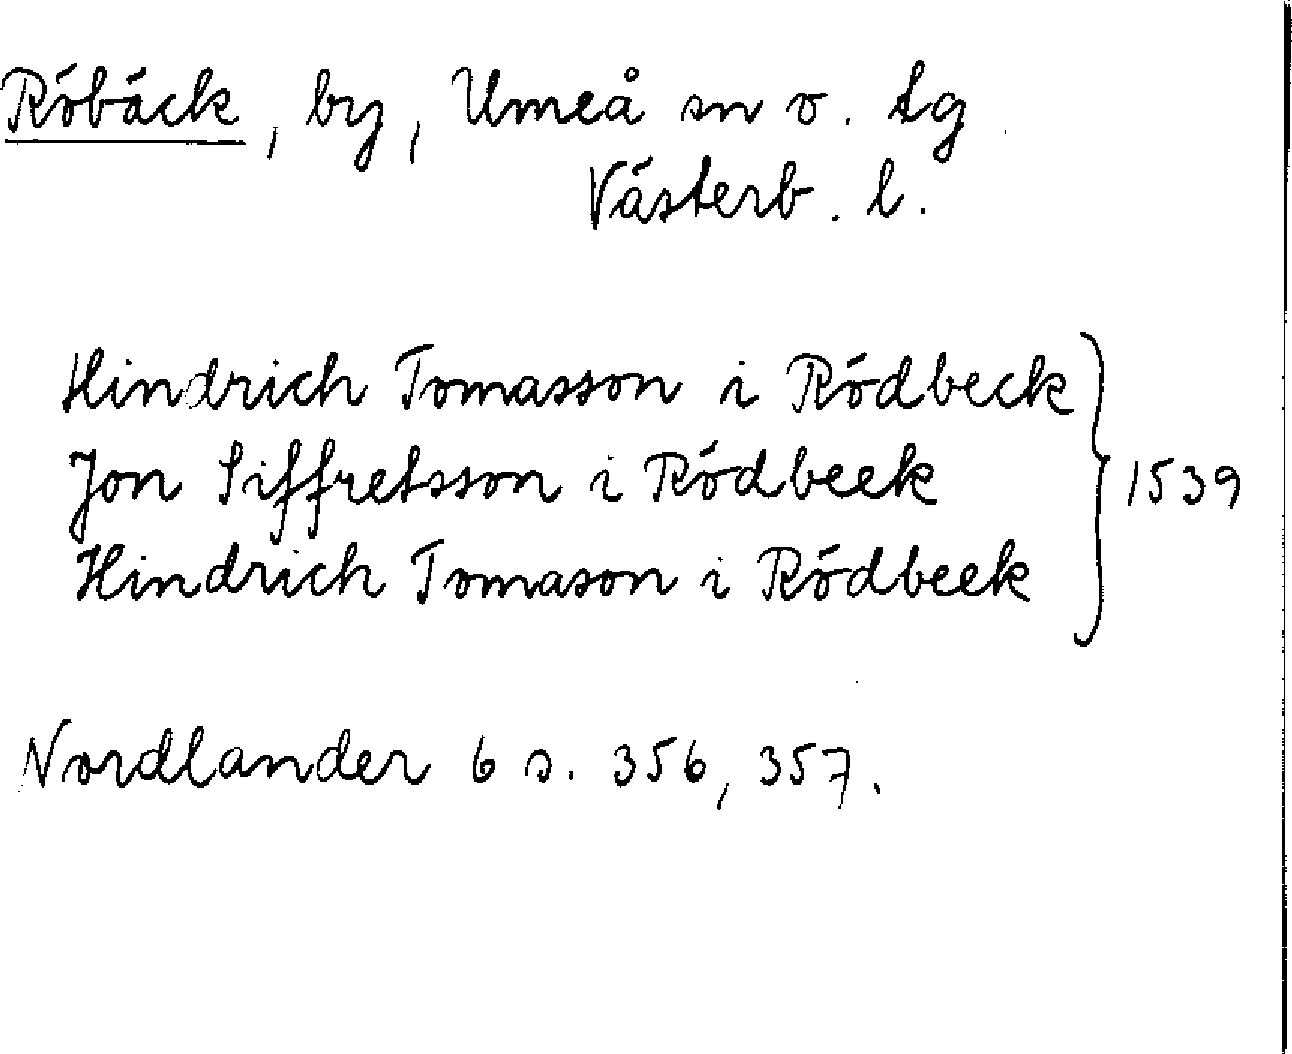 Röbäck, by, Umeå sn o. tg
Västerb. l.
Hindrich Tomasson i Rödbeck
Jon Siffretsson i Rödbeek } 1539
Hindrich Tomason i Rödbeek
Nordlander 6 s. 356, 357.